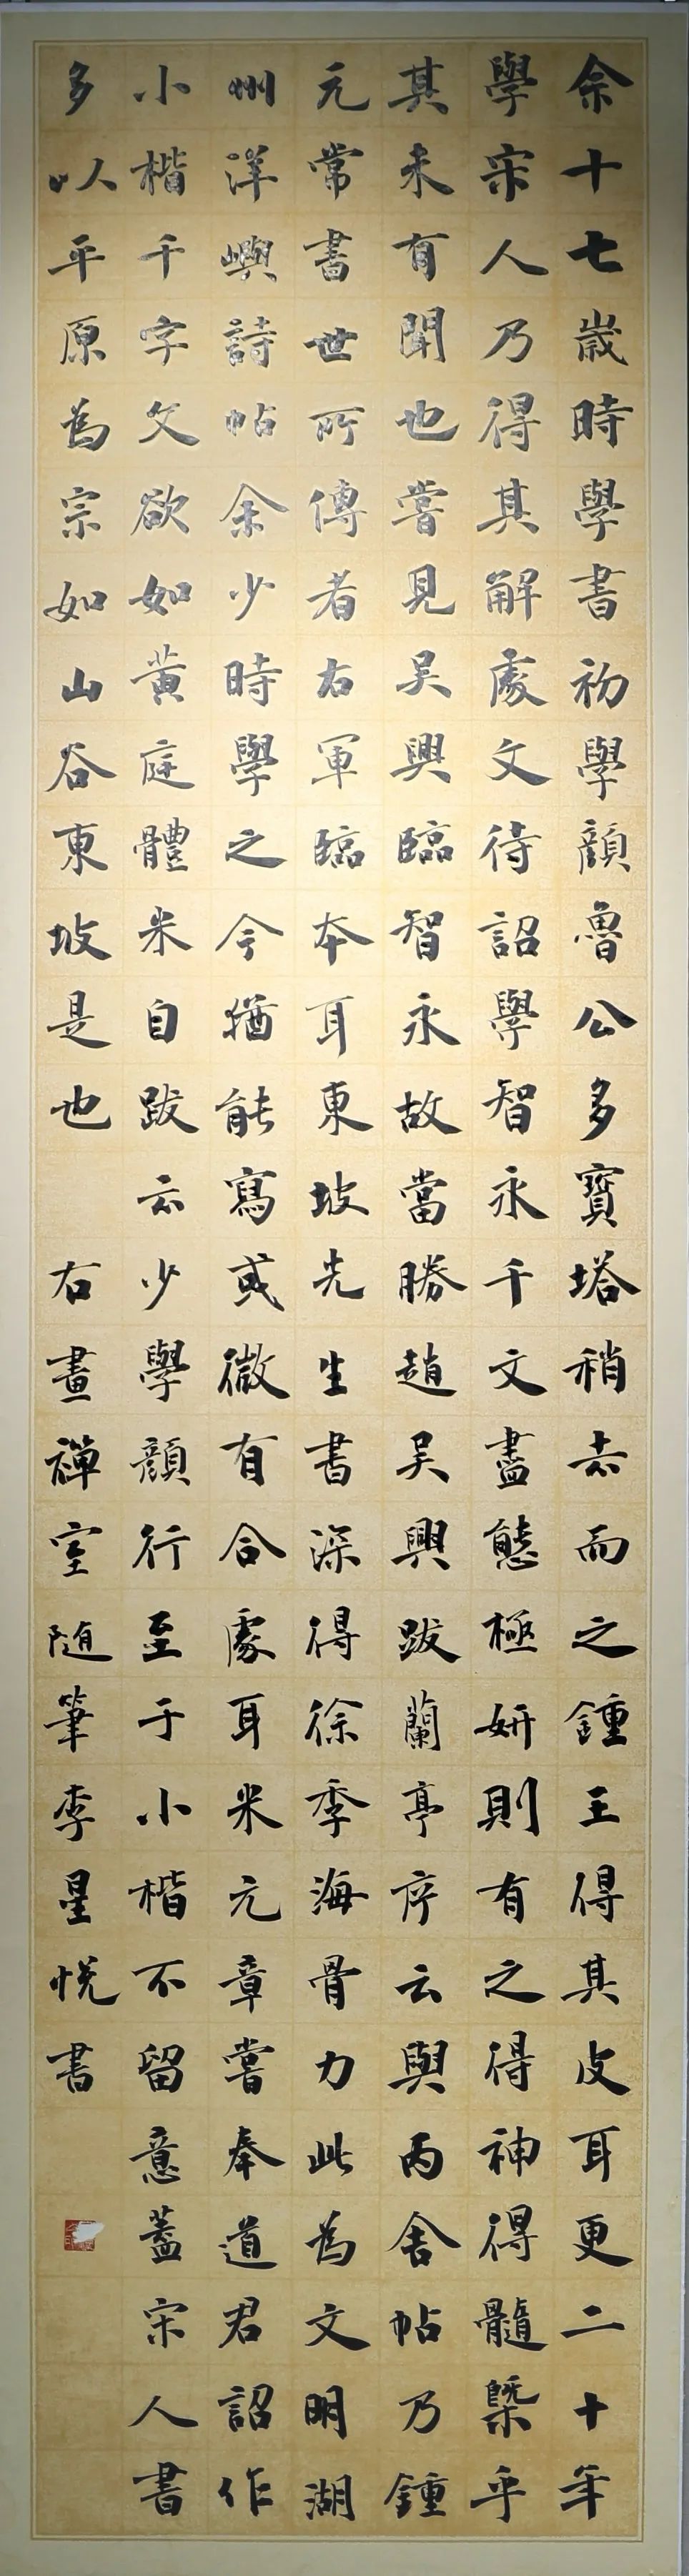 余十七歲時學書初學顔魯公多寶塔稍去而之鍾王得其皮耳更二十年
學宋人乃得其解處文待詔學智永千文盡態極妍則有之得神得髓槩乎
其未有聞也嘗見吴興臨智永故當勝趙吴興跋蘭亭序云與丙舍帖乃鍾
元常書世所傳者右軍臨本耳東坡先生書深得徐季海骨力此為文明湖
州洋嶼詩帖余少時學之今猶能寫或微有合處耳米元章嘗奉道君詔作
小楷千字文欲如黄庭體米自跋云少學顔行至于小楷不留意蓋宋人書
多以平原為宗如山谷東坡是也 右畫禪室随筆李星悦書